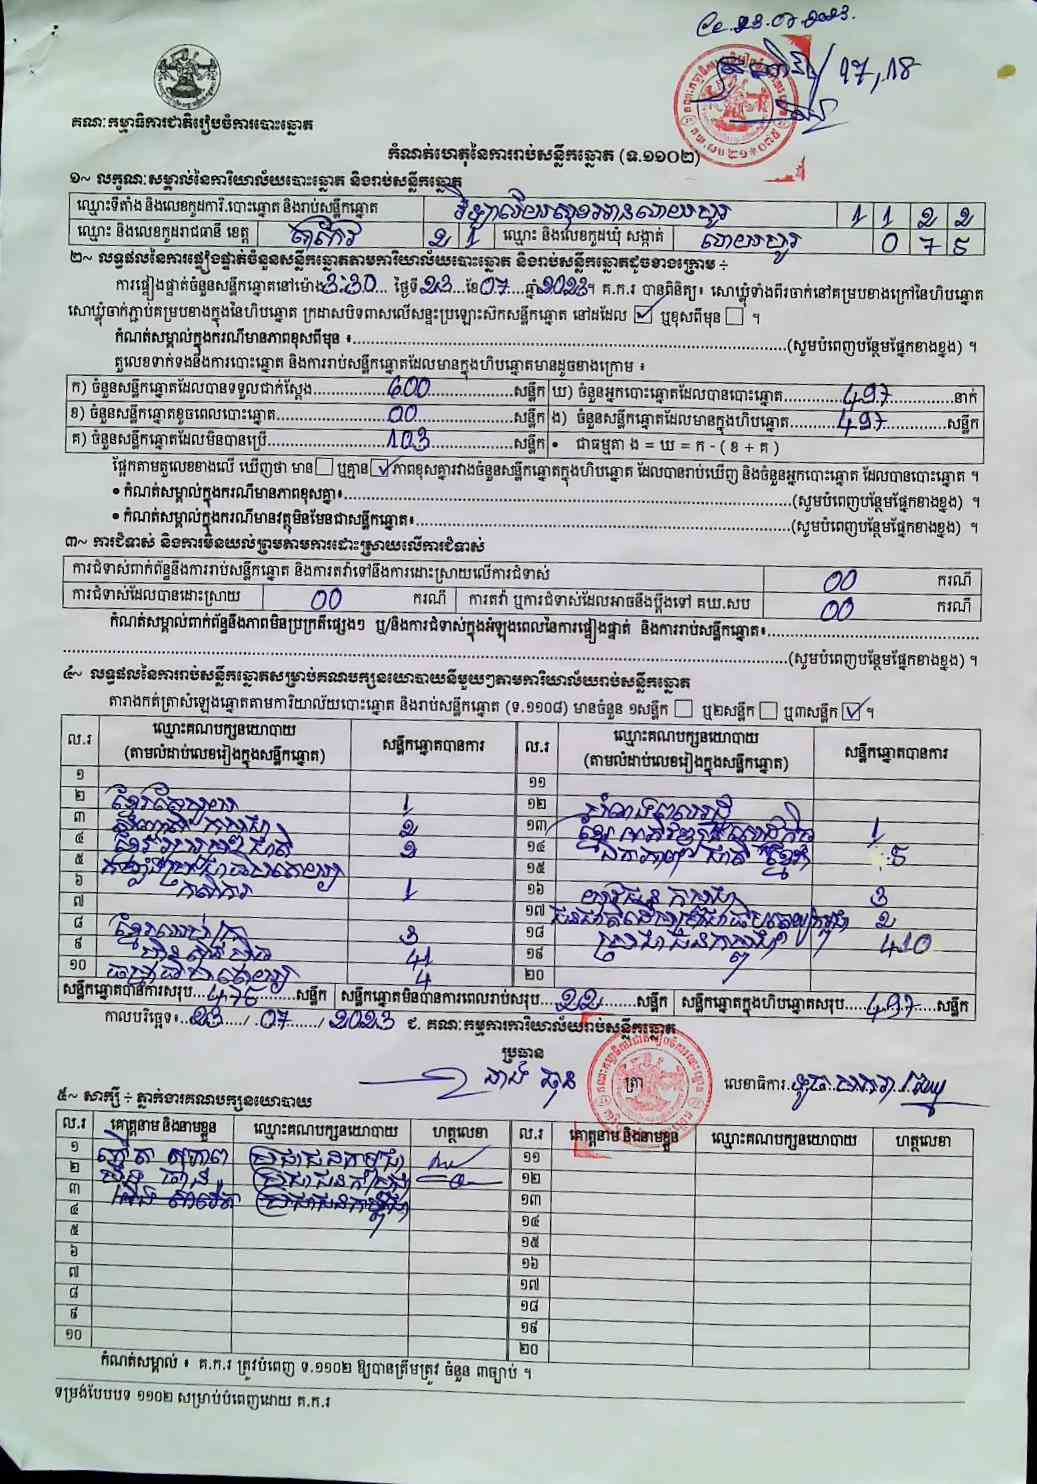 គណៈកម្មាធិការជាតិរៀបចំការបោះឆ្នោត
កំណត់ហេតុនៃការរាប់សន្លឹកឆ្នោត (ទ.១១០២)
១~ លក្ខណៈសម្គាល់នៃការិយាល័យបោះឆ្នោត និងរាប់សន្លឹកឆ្នោត
ឈ្មោះទីតាំង និងលេខកូដការិ.បោះឆ្នោត និងរាប់សន្លឹកឆ្នោត 1 1 2 2
ឈ្មោះ និងលេខកូដរាជធានី ខេត្ត តាកែវ 2 1 ឈ្មោះ និងលេខកូដឃុំ សង្កាត់ 0 7 5
២~ លទ្ធផលនៃការផ្ទៀងផ្ទាត់ចំនួនសន្លឹកឆ្នោតតាមការិយាល័យបោះឆ្នោត និងរាប់សន្លឹកឆ្នោតដូចខាងក្រោម ÷
ការផ្ទៀងផ្ទាត់ចំនួនសន្លឹកឆ្នោតនៅម៉ោង 3:30 ថ្ងៃទី 23 ខែ 07 ឆ្នាំ 2023។ គ.ក.រ បានពិនិត្យ៖ សោឃ្លុំទាំងពីរចាក់នៅគម្របខាងក្រៅនៃហិបឆ្នោត
សោឃ្លុំចាក់ភ្ជាប់គម្របខាងក្នុងនៃហិបឆ្នោត ក្រដាសបិទពាសលើសន្ទះប្រឡោះសឹកសន្លឹកឆ្នោត នៅដដែល ☑ ឬខុសពីមុន ☐ ។
កំណត់សម្គាល់ក្នុងករណីមានភាពខុសពីមុន ៖ (សូមបំពេញបន្ថែមផ្នែកខាងខ្នង) ។
តួលេខទាក់ទងនឹងការបោះឆ្នោត និងការរាប់សន្លឹកឆ្នោតដែលមានក្នុងហិបឆ្នោតមានដូចខាងក្រោម ៖
ក) ចំនួនសន្លឹកឆ្នោតដែលបានទទួលជាក់ស្ដែង 600 សន្លឹក ឃ) ចំនួនអ្នកបោះឆ្នោតដែលបានបោះឆ្នោត 497 នាក់
ខ) ចំនួនសន្លឹកឆ្នោតខូចពេលបោះឆ្នោត 00 សន្លឹក ង) ចំនួនសន្លឹកឆ្នោតដែលមានក្នុងហិបឆ្នោត 497 សន្លឹក
គ) ចំនួនសន្លឹកឆ្នោតដែលមិនបានប្រើ 103 សន្លឹក • ជាធម្មតា ង = ឃ = ក - ( ខ + គ )
ផ្អែកតាមតួលេខខាងលើ ឃើញថា មាន ☐ ឬគ្មាន ☑ ភាពខុសគ្នារវាងចំនួនសន្លឹកឆ្នោតក្នុងហិបឆ្នោត ដែលបានរាប់ឃើញ និងចំនួនអ្នកបោះឆ្នោត ដែលបានបោះឆ្នោត ។
• កំណត់សម្គាល់ក្នុងករណីមានភាពខុសគ្នា៖ (សូមបំពេញបន្ថែមផ្នែកខាងខ្នង) ។
• កំណត់សម្គាល់ក្នុងករណីមានវត្ថុមិនមែនជាសន្លឹកឆ្នោត៖ (សូមបំពេញបន្ថែមផ្នែកខាងខ្នង) ។
៣~ ការជំទាស់ និងការមិនយល់ព្រមតាមការដោះស្រាយលើការជំទាស់
ការជំទាស់ពាក់ព័ន្ធនឹងការរាប់សន្លឹកឆ្នោត និងការតវ៉ាទៅនឹងការដោះស្រាយលើការជំទាស់ 00 ករណី
ការជំទាស់ដែលបានដោះស្រាយ 00 ករណី ការតវ៉ា ឬការជំទាស់ដែលអាចនឹងប្ដឹងទៅ គឃ.សប 00 ករណី
កំណត់សម្គាល់ពាក់ព័ន្ធនឹងភាពមិនប្រក្រតីផ្សេងៗ ឬ/និងការជំទាស់ក្នុងអំឡុងពេលនៃការផ្ទៀងផ្ទាត់ និងការរាប់សន្លឹកឆ្នោត៖
(សូមបំពេញបន្ថែមផ្នែកខាងខ្នង) ។
៤~ លទ្ធផលនៃការរាប់សន្លឹកឆ្នោតសម្រាប់គណបក្សនយោបាយនីមួយៗតាមការិយាល័យរាប់សន្លឹកឆ្នោត
តារាងកត់ត្រាសំឡេងឆ្នោតតាមការិយាល័យបោះឆ្នោត និងរាប់សន្លឹកឆ្នោត (ទ.១១០៨) មានចំនួន ១សន្លឹក ☐ ឬ២សន្លឹក ☐ ឬ៣សន្លឹក ☑ ។
ល.រ ឈ្មោះគណបក្សនយោបាយ (តាមលំដាប់លេខរៀងក្នុងសន្លឹកឆ្នោត) សន្លឹកឆ្នោតបានការ ល.រ ឈ្មោះគណបក្សនយោបាយ (តាមលំដាប់លេខរៀងក្នុងសន្លឹកឆ្នោត) សន្លឹកឆ្នោតបានការ
១ ១១
២ ខ្មែរតែមួយ 1 ១២
៣ 2 ១៣ 1
៤ 2 ១៤ 5
៥ ១៥
៦ កសិករ 1 ១៦ យុវជនកម្ពុជា 3
៧ ១៧ 2
៨ 3 ១៨ ប្រជាជនកម្ពុជា 410
៩ 41 ១៩
១០ 4 ២០
សន្លឹកឆ្នោតបានការសរុប 475 សន្លឹក សន្លឹកឆ្នោតមិនបានការពេលរាប់សរុប 22 សន្លឹក សន្លឹកឆ្នោតក្នុងហិបឆ្នោតសរុប 497 សន្លឹក
កាលបរិច្ឆេទ៖ 23 / 07 / 2023 ជ. គណៈកម្មការការិយាល័យរាប់សន្លឹកឆ្នោត
ប្រធាន
ត្រា លេខាធិការ
៥~ សាក្សី ÷ ភ្នាក់ងារគណបក្សនយោបាយ
ល.រ គោត្តនាម និងនាមខ្លួន ឈ្មោះគណបក្សនយោបាយ ហត្ថលេខា ល.រ គោត្តនាម និងនាមខ្លួន ឈ្មោះគណបក្សនយោបាយ ហត្ថលេខា
១ ប្រជាជនកម្ពុជា ១១
២ ប្រជាជនកម្ពុជា ១២
៣ ប្រជាជនកម្ពុជា ១៣
៤ ១៤
៥ ១៥
៦ ១៦
៧ ១៧
៨ ១៨
៩ ១៩
១០ ២០
កំណត់សម្គាល់ ៖ គ.ក.រ ត្រូវបំពេញ ទ.១១០២ ឱ្យបានត្រឹមត្រូវ ចំនួន ៣ច្បាប់ ។
ទម្រង់បែបបទ ១១០២ សម្រាប់បំពេញដោយ គ.ក.រ